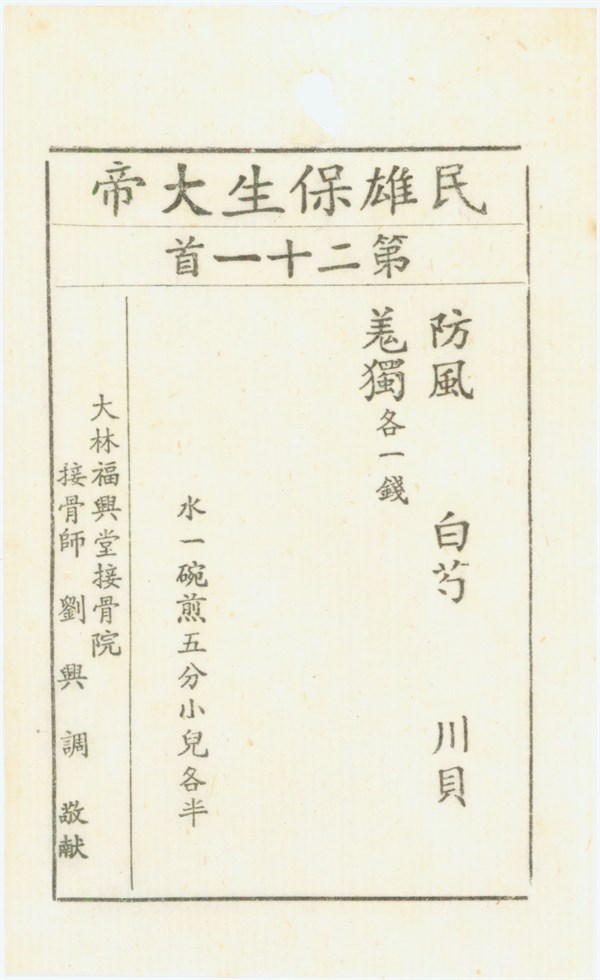 民雄保生大帝
第二十一首
防風 白芍 川貝
羗獨各一錢
水一碗煎五分小兒各半
大林福興堂接骨院
接骨師 劉興調 敬献